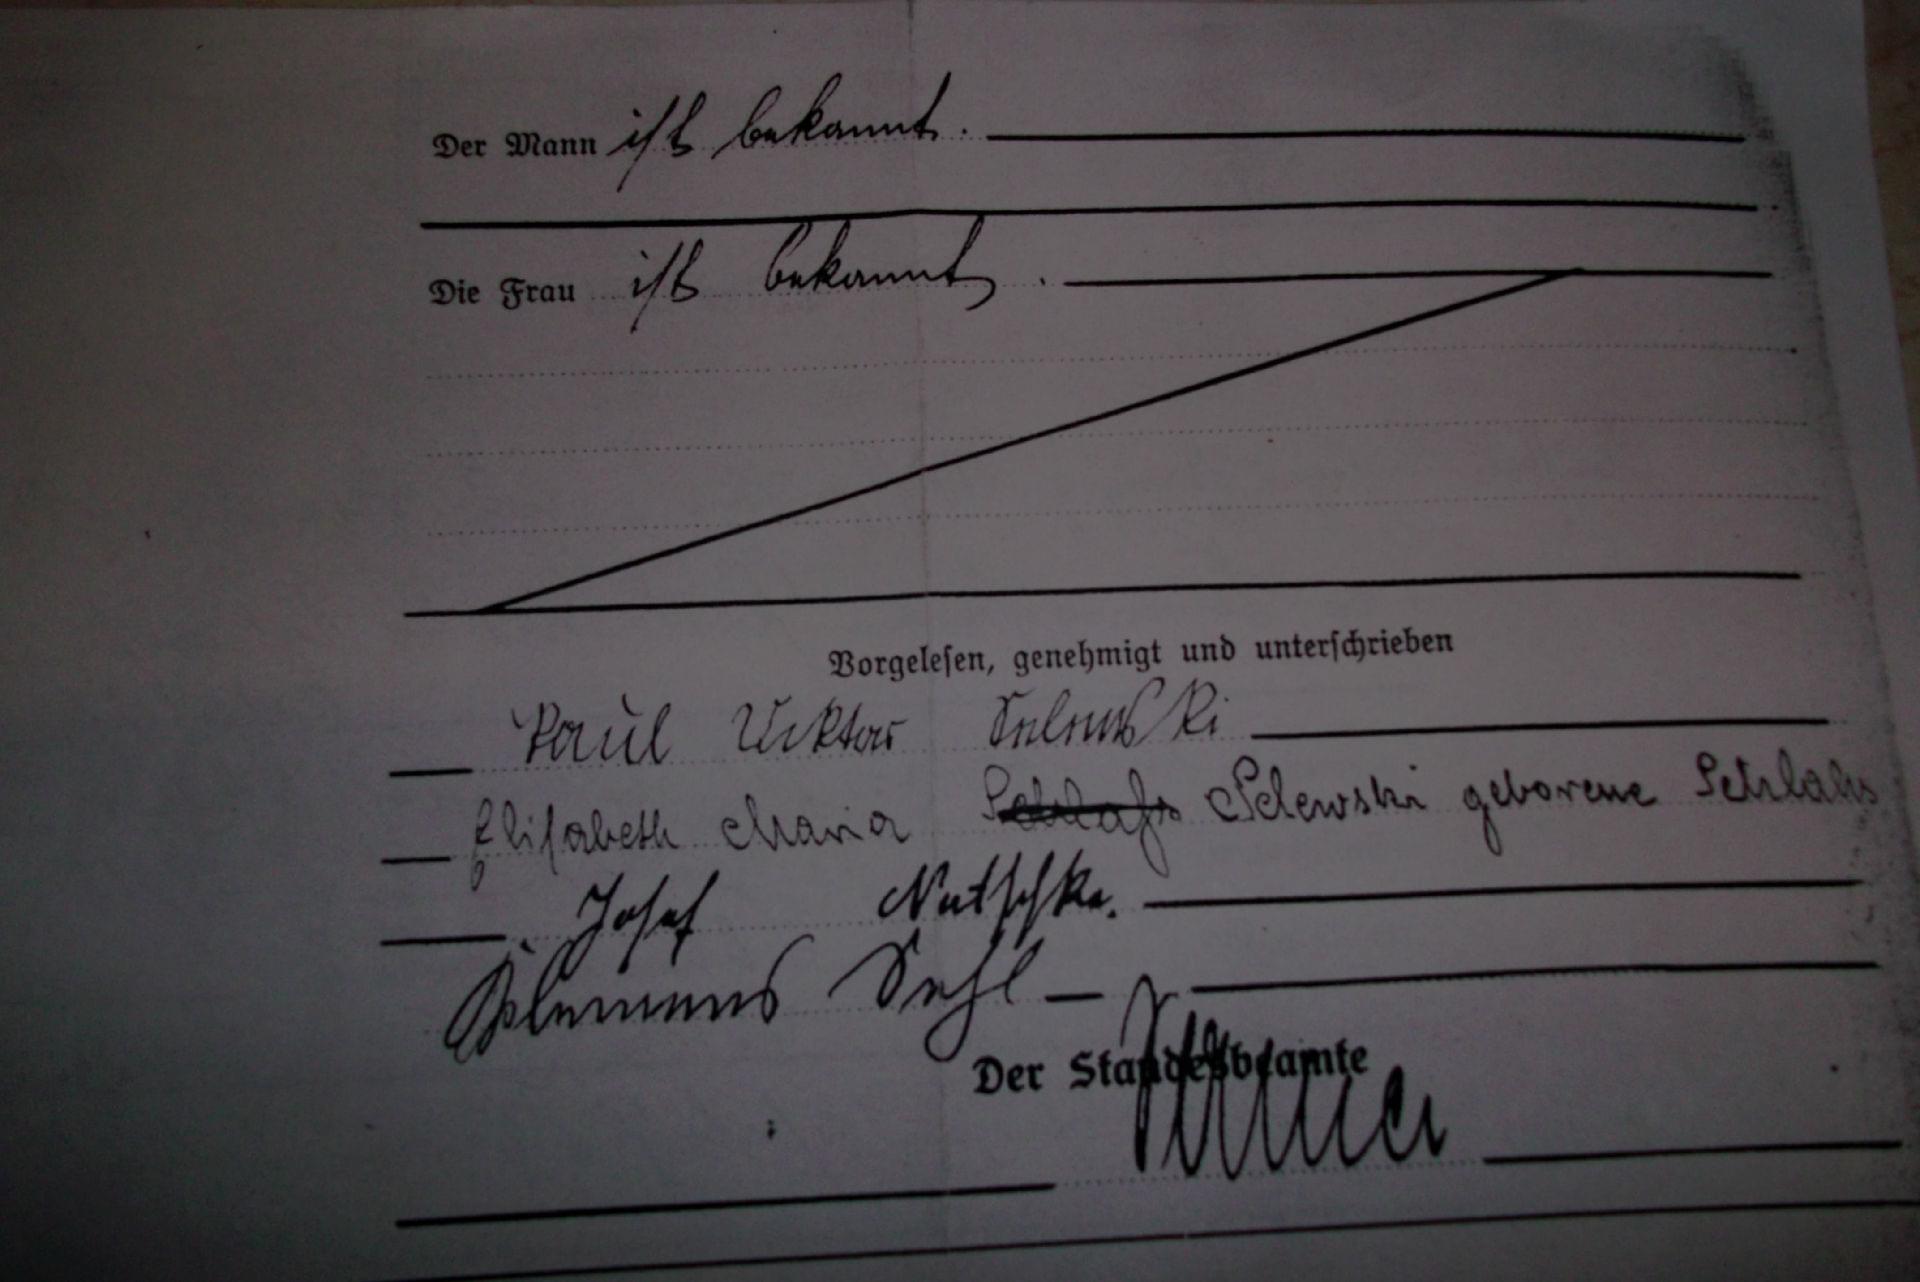 Der Mann ist bekannt.
Die Frau ist bekannt.
Vorgelesen, genehmigt und unterschrieben
Paul Viktor Selewski
Elisabeth Maria Selewski geborene
Josef Nutschke.
Klemens
Der Standesbeamte